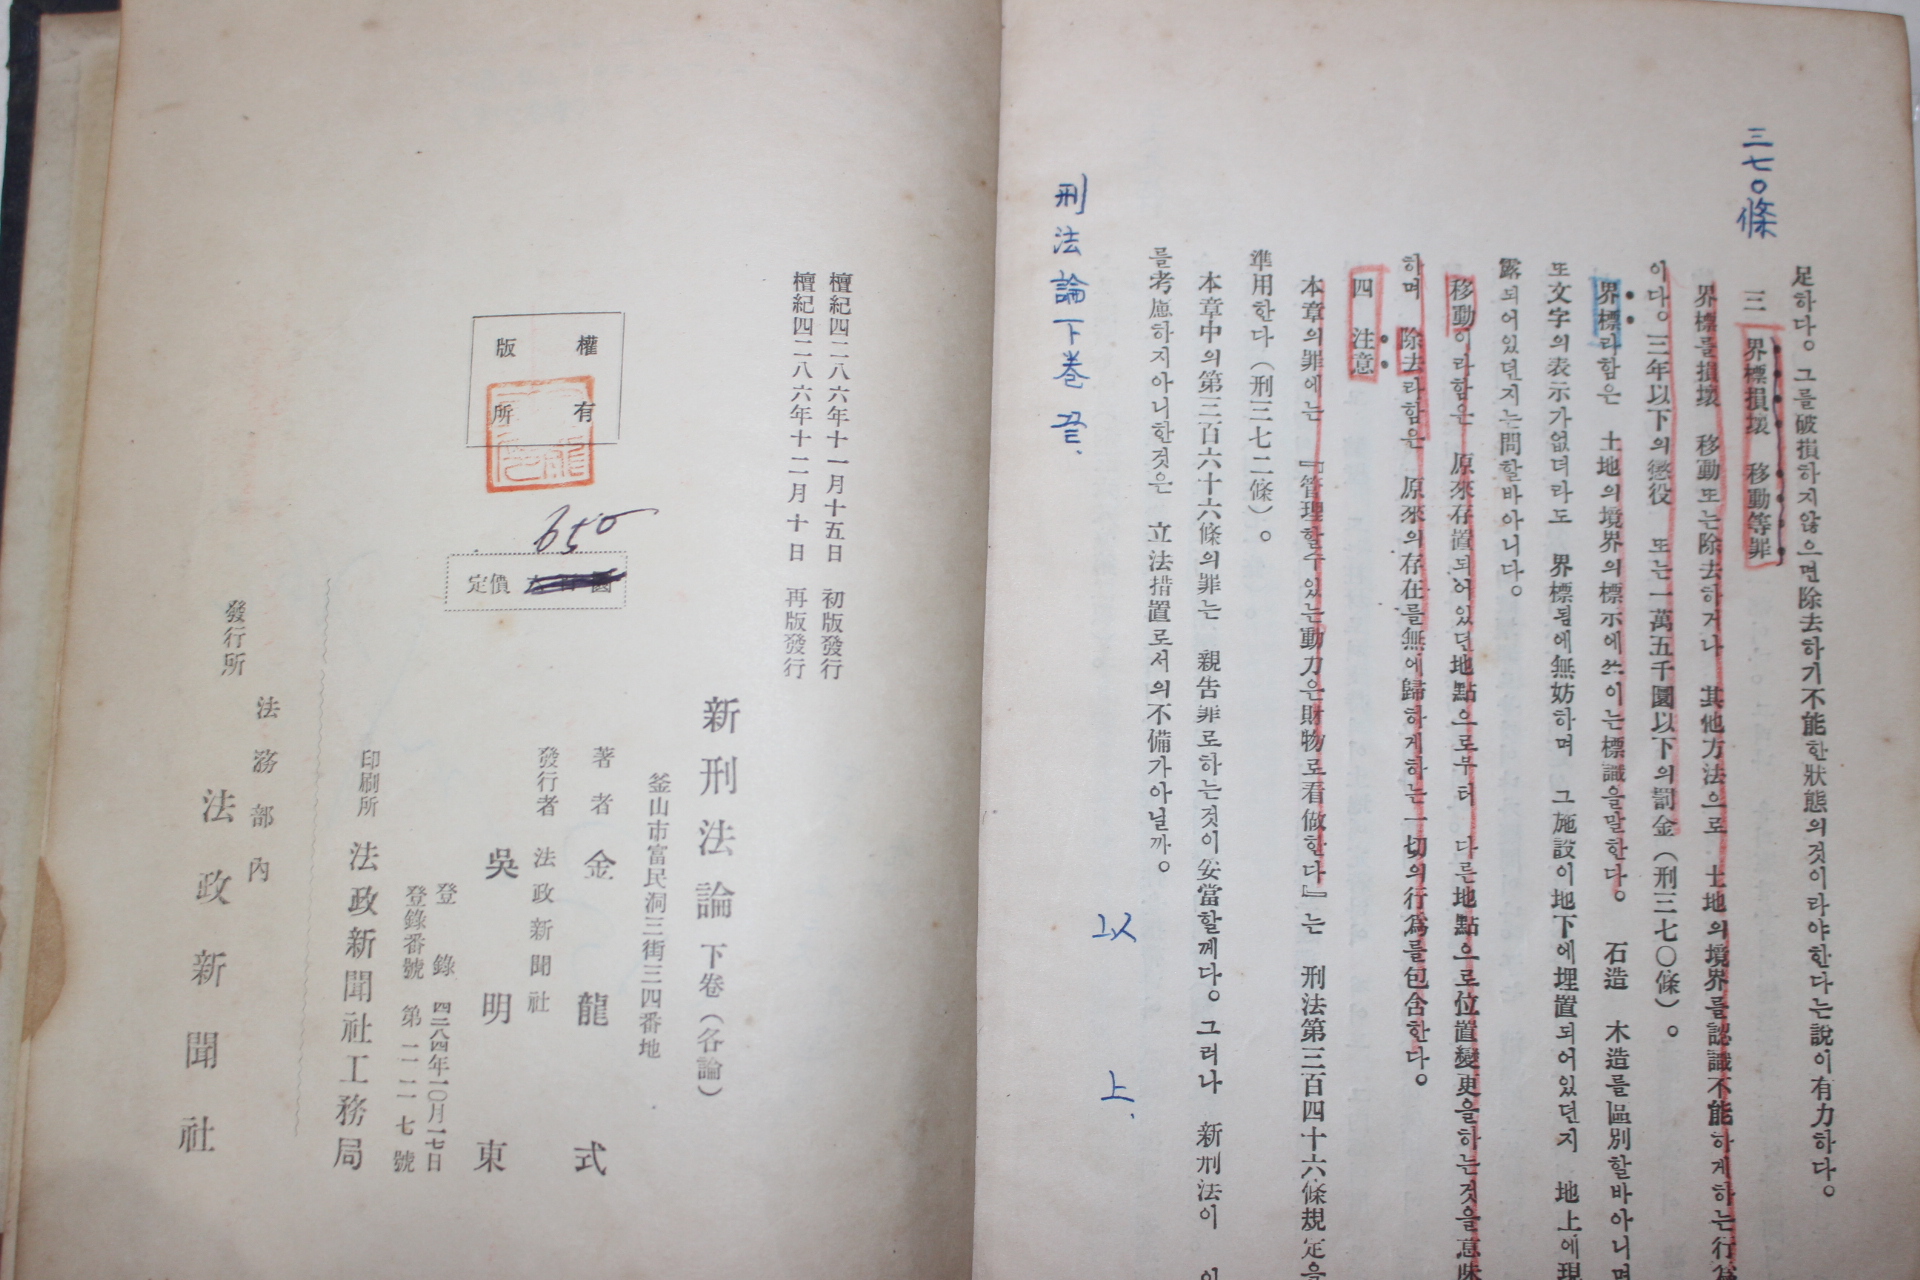 三七〇條
足하다。그를破損하지않으면除去하기不能한狀態의것이라야한다는說이有力하다。
三 界標損壞 移動等罪
界標를損壞 移動또는除去하거나 其他方法으로 土地의境界를認識不能하게하는行爲
이다。三年以下의懲役 또는一萬五千圜以下의罰金(刑三七〇條)。
界標라함은 土地의境界의標示에쓰이는標識을말한다。 石造 木造를區別할바아니며
또文字의表示가없더라도 界標됨에無妨하며 그施設이地下에埋置되어있던지 地上에現
露되어있던지는問할바아니다。
移動이라함은 原來存置되어있던地點으로부터 다른地點으로位置變更을하는것을意味
하며 除去라함은 原來의存在를無에歸하게하는一切의行爲를包含한다。
四 注意
本章의罪에는 『管理할수있는動力은財物로看做한다』는 刑法第三百四十六條規定을
準用한다(刑三七二條)。
本章中의第三百六十六條의罪는 親告罪로하는것이妥當할께다。그러나 新刑法이 이
를考慮하지아니한것은 立法措置로서의不備가아닐까。
刑法論下卷 끝.
以
上.
檀紀四二八六年十一月十五日 初版發行
檀紀四二八六年十二月十日 再版發行
新刑法論 下卷(各論)
釜山市富民洞三街三四番地
著者 金龍式
發行者 法政新聞社
吳明東
登錄 四二八四年一〇月一七日
登錄番號 第二一二七號
印刷所 法政新聞社工務局
權有
版所
650
定價
發行所
法務部內
法政新聞社